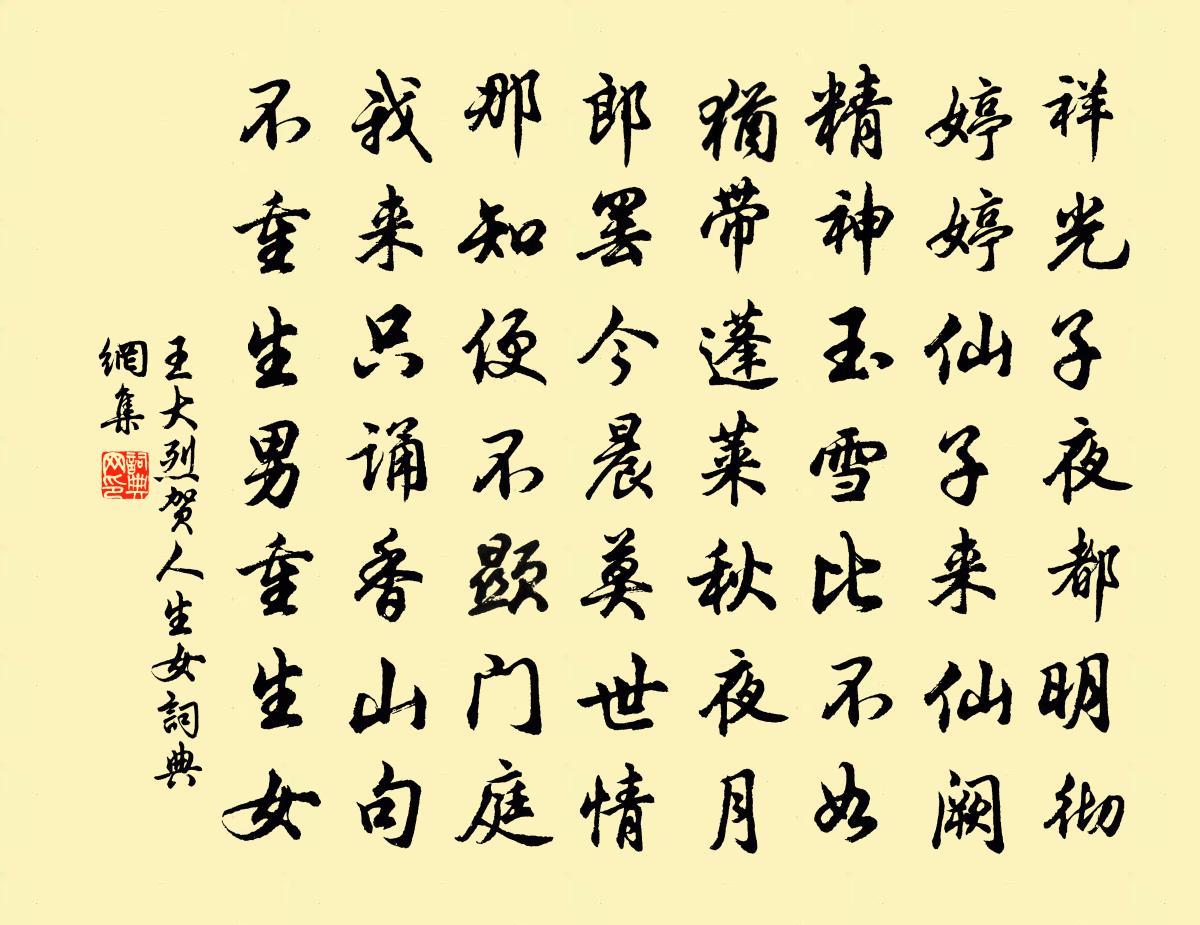 祥光子夜都明彻
婷婷仙子来仙阙
精神玉雪比不如
犹带蓬莱秋夜月
郎罢今晨莫世情
那知便不显门庭
我来只诵香山句
不重生男重生女
王大烈贺人生女詞典
網集
詞典
网印